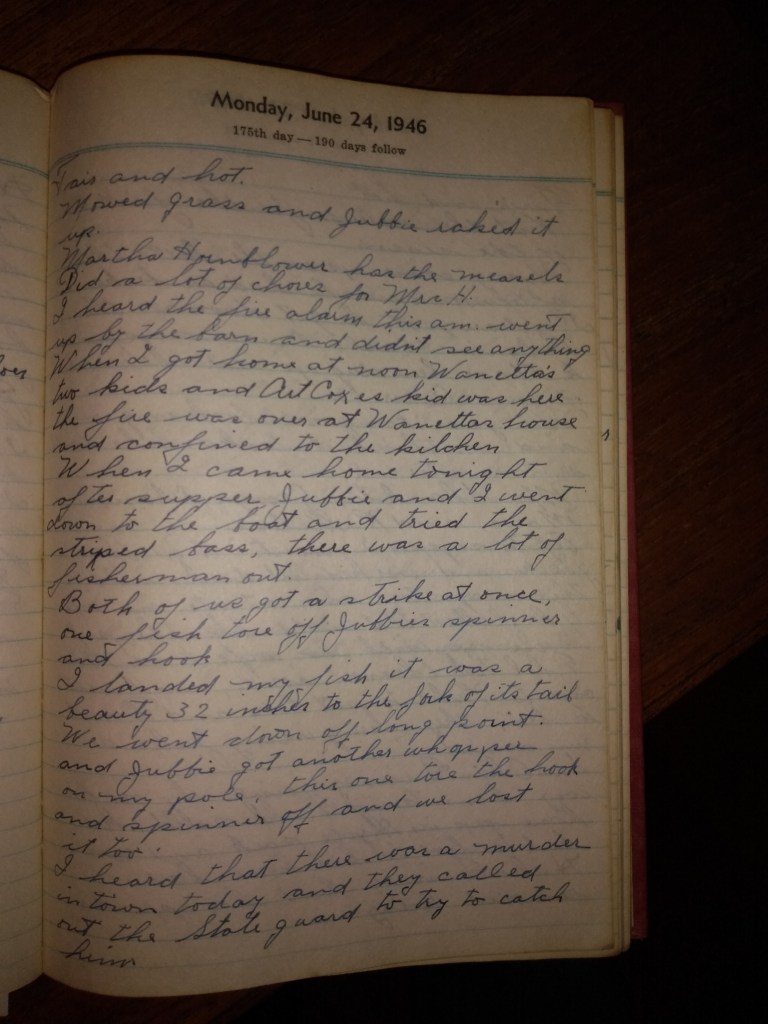 Monday, June 24, 1946
175th day — 190 days follow
Fair and hot.
Mowed grass and Jubbie raked it
up.
Martha Hornblower has the measels
Did a lot of chores for Mrs H.
I heard the fire alarm this am. went
up by the barn and didn't see anything
When I got home at noon Wanetta's
two kids and Art Coxes kid was here
the fire was over at Wanettas house
and confined to the kitchen
When I came home tonight
after supper Jubbie and I went
down to the boat and tried the
striped bass, there was a lot of
fisherman out.
Both of us got a strike at once,
one fish tore off Jubbies spinner
and hook
I landed my fish it was a
beauty 32 inches to the fork of its tail
We went down off long point.
and Jubbie got another whopper
on my pole, this one tore the hook
and spinner off and we lost
it too.
I heard that there was a murder
in town today and they called
out the State guard to try to catch
him